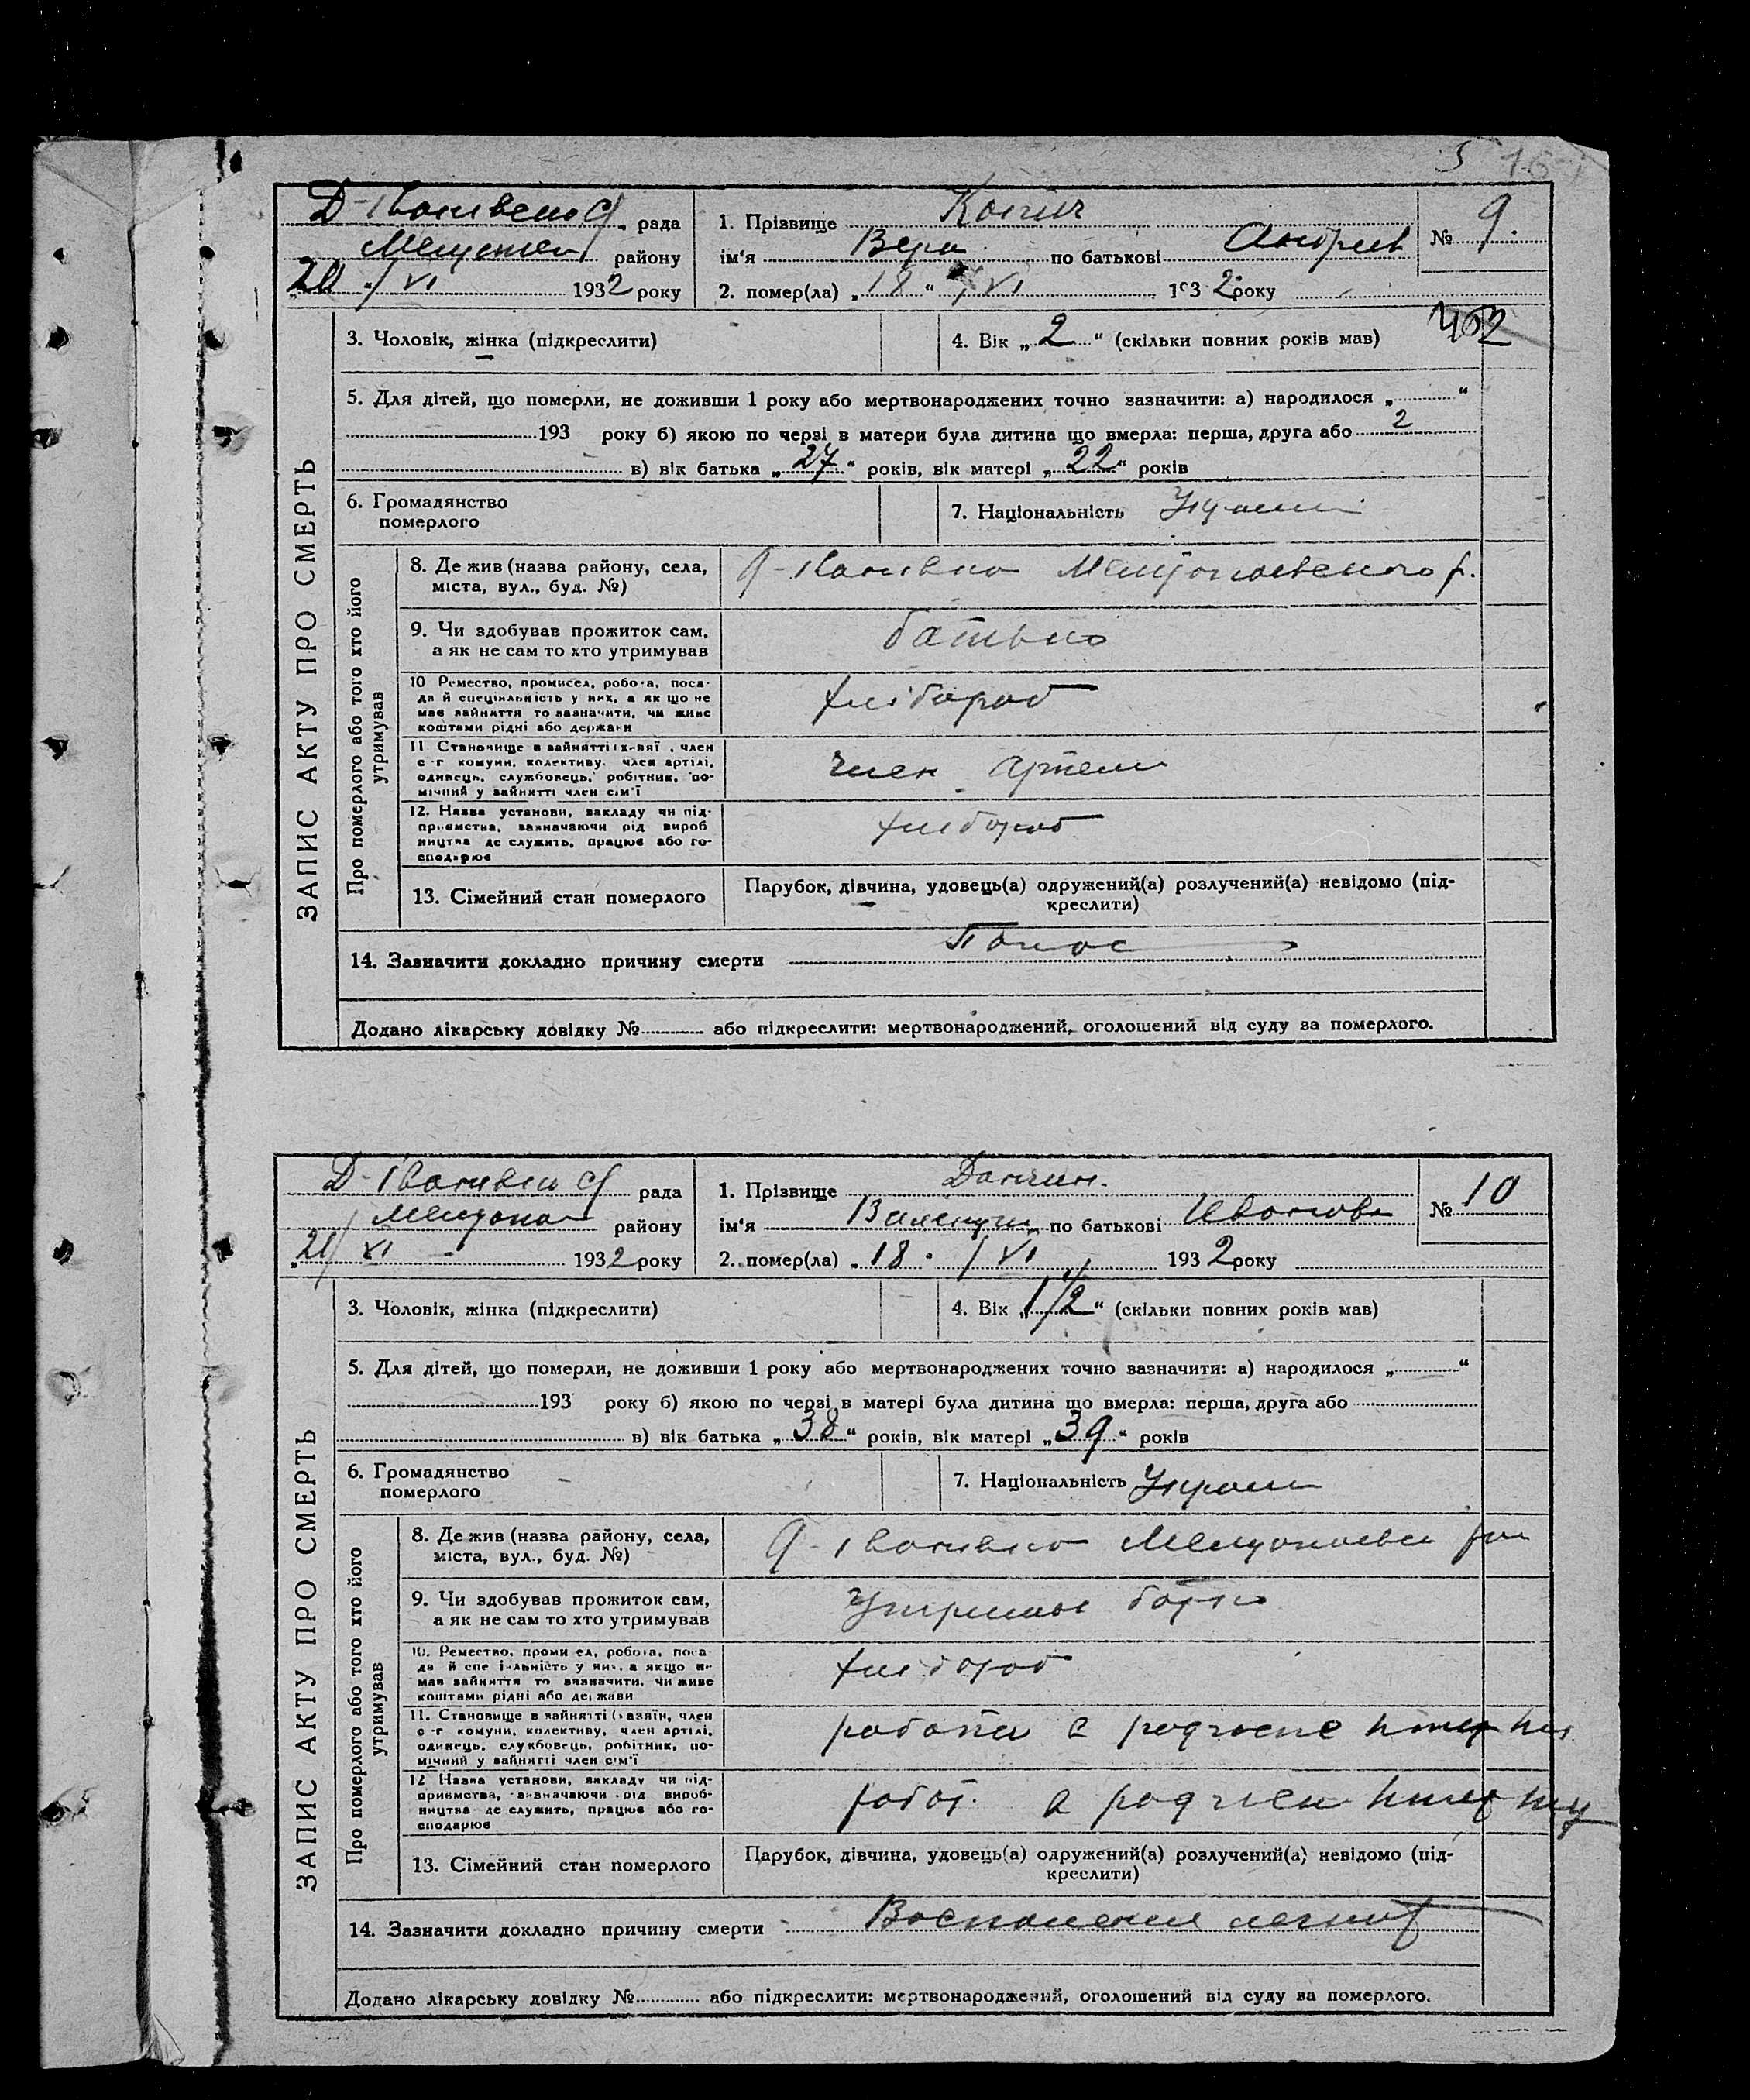 5 16
рада
району
20 / VI 1932 року
1. Прізвище Копич
ім'я Вера по батькові Андріев
№ 9.
2. помер(ла) „18“ / VI 1932 року
462
3. Чоловік, жінка (підкреслити)
4. Вік „2“ (скільки повних років мав)
5. Для дітей, що померли, не доживши 1 року або мертвонароджених точно зазначити: а) народилося „ “
193 року б) якою по черзі в матери була дитина що вмерла: перша, друга або 2
в) вік батька „27“ років, вік матері „22“ років
6. Громадянство
померлого
7. Національність
ЗАПИС АКТУ ПРО СМЕРТЬ
Про померлого або того хто його
утримував
8. Де жив (назва району, села,
міста, вул., буд. №)
9. Чи здобував прожиток сам,
а як не сам то хто утримував
батько
10 Ремество, промисел, робота, поса-
да й спеціяльність у них, а як що не
має зайняття то зазначити, чи живе
коштами рідні або держави
хлібороб
11 Становище в зайнятті (х-зяї , член
с-г комуни, колективу, член артілі,
одинець, службовець, робітник, по-
мічний у зайнятті член сім'ї
член артели
12. Назва установи, закладу чи під-
приємства, зазначаючи рід вироб
ництва де служить, працює або го-
сподарює
хлібороб
13. Сімейний стан померлого
Парубок, дівчина, удовець(а) одружений(а) розлучений(а) невідомо (під-
креслити)
14. Зазначити докладно причину смерти Понос
Додано лікарську довідку № або підкреслити: мертвонароджений, оголошений від суду за померлого.
рада
району
21/ VI 1932 року
1. Прізвище Дончин.
ім'я по батькові Ивонова
№ 10
2. помер(ла) „18 / VI 1932 року
3. Чоловік, жінка (підкреслити)
4. Вік „1 1/2“ (скільки повних років мав)
5. Для дітей, що померли, не доживши 1 року або мертвонароджених точно зазначити: а) народилося „ “
193 року б) якою по черзі в матері була дитина що вмерла: перша, друга або
в) вік батька „38“ років, вік матері „39“ років
6. Громадянство
померлого
7. Національність
ЗАПИС АКТУ ПРО СМЕРТЬ
Про померлого або того хто його
утримував
8. Де жив (назва району, села,
міста, вул., буд. №)
9. Чи здобував прожиток сам,
а як не сам то хто утримував
10. Ремество, проми ел, робота, поса
да й спе і-льність у них, а якщо не
має зайняття то зазначити, чи живе
коштами рідні або держави
хлібороб
11. Становище в зайнятті (хазяїн, член
с-г комуни, колективу, член артілі,
одинець, службовець, робітник, по-
мічний у зайнятті член сім'ї
12 Назва установи, закладу чи під-
приємства, зазначаючи рід вироб-
ництва де служить, працює або го-
сподарює
робот.
13. Сімейний стан померлого
Парубок, дівчина, удовець(а) одружений(а) розлучений(а) невідомо (під-
креслити)
14. Зазначити докладно причину смерти Воспаления легких
Додано лікарську довідку № або підкреслити: мертвонароджений, оголошений від суду за померлого.